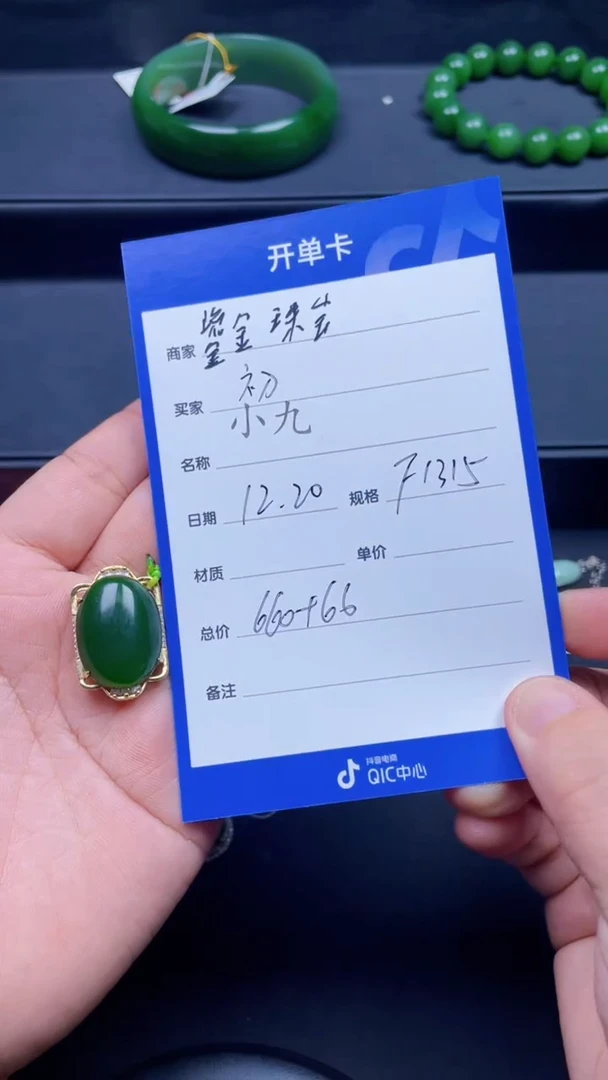 开单卡
商家 金 珠宝
买家 初
小九
名称
日期 12.20 规格 F1315
材质 单价
总价 660+66
备注
抖音电商
QIC中心